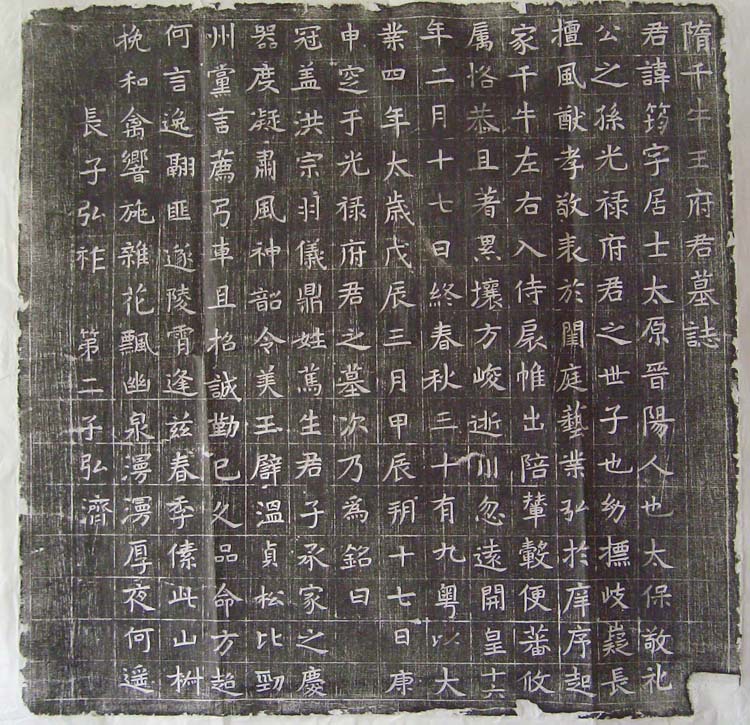 隋千牛王府君墓誌
君諱筠字居士太原晉陽人也太保敬礼
公之孫光祿府君之世子也幼摽岐嶷長
擅風猷孝敬表於閨庭藝業弘於庠序起
家千牛左右入侍扆帷出陪輦轂便蕃攸
属恪恭且著黑壤方峻逝川忽遠開皇十六
年二月十七日終春秋三十有九粤以大
業四年太歲戊辰三月甲辰朔十七日庚
申窆于光祿府君之墓次乃為銘曰
冠盖洪宗羽儀鼎姓篤生君子承家之慶
器度凝肅風神韶令美玉譬溫貞松比勁
州黨言薦弓車且招誠勤已久品命方超
何言逸翮匪遂陵霄逢兹春季傃此山椒
挽和禽響旐雜花飄幽泉漫漫厚夜何遥
長子弘祚 第二子弘濟